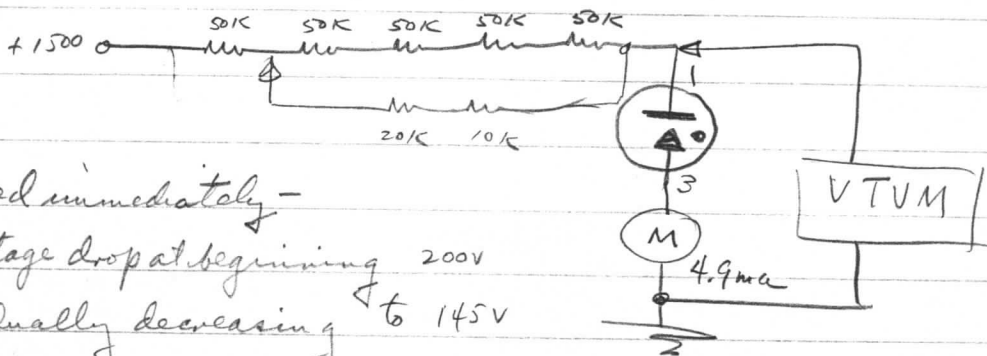 50K 50K 50K 50K 50K
+1500
1
20K 10K
3
VTVM
ed immediately -
M
tage drop at beginning 200v
4.9ma
ually decreasing to 145v